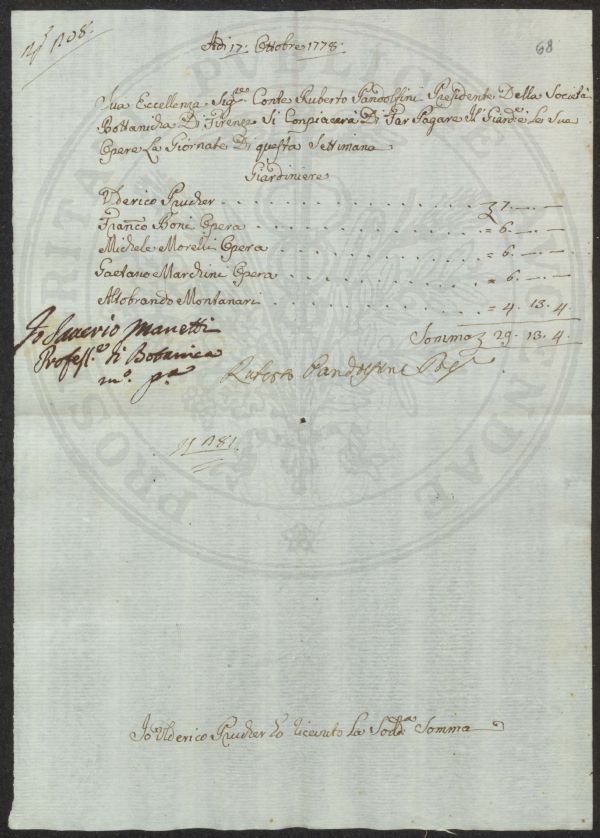 N.º 1208.
68
Adi 17: Ottobre 1778:
Sua Eccellenza Sig.re Conte Ruberto Pandolfini Presidente Della Società
Bottanicha Di Firenze Si Conpiacerà Di Far Pagare Il Giard.e Le Sua
Opere La Giornate Di questa Settimana
Giardiniere
Ulderico Prucher . . . . . 7. — . —
Franco Boni Opera . . . . . = 6. — . —
Michele Morelli Opera . . . . . = 6. — . —
Gaetano Marchini Opera . . . . . = 6. — . —
Altobrando Montanari . . . . . = 4. 13. 4
Somma 29. 13. 4.
Io Saverio Manetti
Profess.e di Botanica
m.o p.a
Ruberto Pandolfini
Io Ulderico Prucher ho riceuto La Sodd.a Somma
PROSPERITATI PUBLICAE AUGENDAE